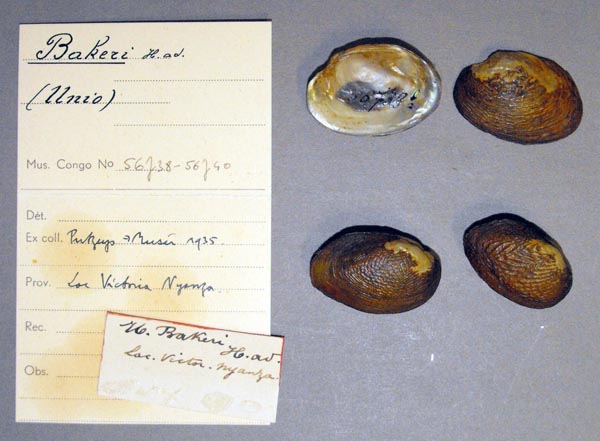 Bakeri H. ad.
(Unio)
Mus. Congo No 56738-56740
Dét.
Ex coll. Putzeys → Musée 1935.
Prov. Lac Victoria Nyanza.
Rec.
Obs.
U. Bakeri H. ad.
Lac. Victor. Nyanza.